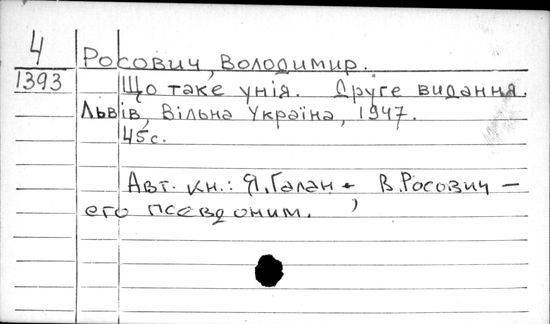 4
Росович, Володимир.
1393
Що таке унія. Друге видання.
Львів, Вільна Україна, 1947.
45с.
Авт. кн.: Я.Галан - В.Росович -
его псевдоним.